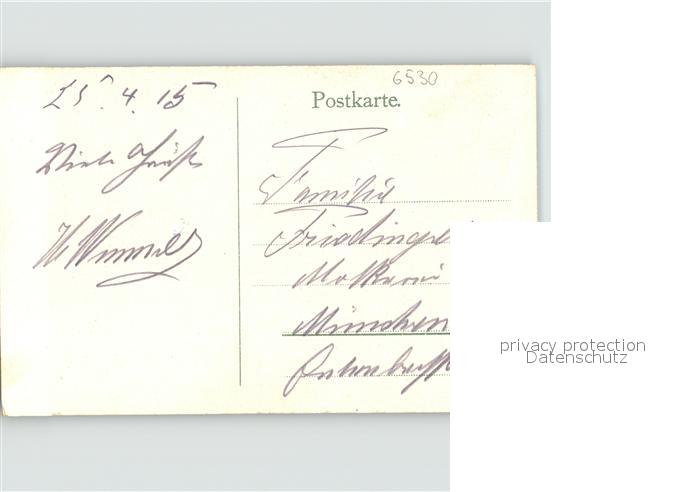 25.4.15
Viele Grüße
6530
Postkarte.
Familie
Molkerei
München
privacy protection
Datenschutz